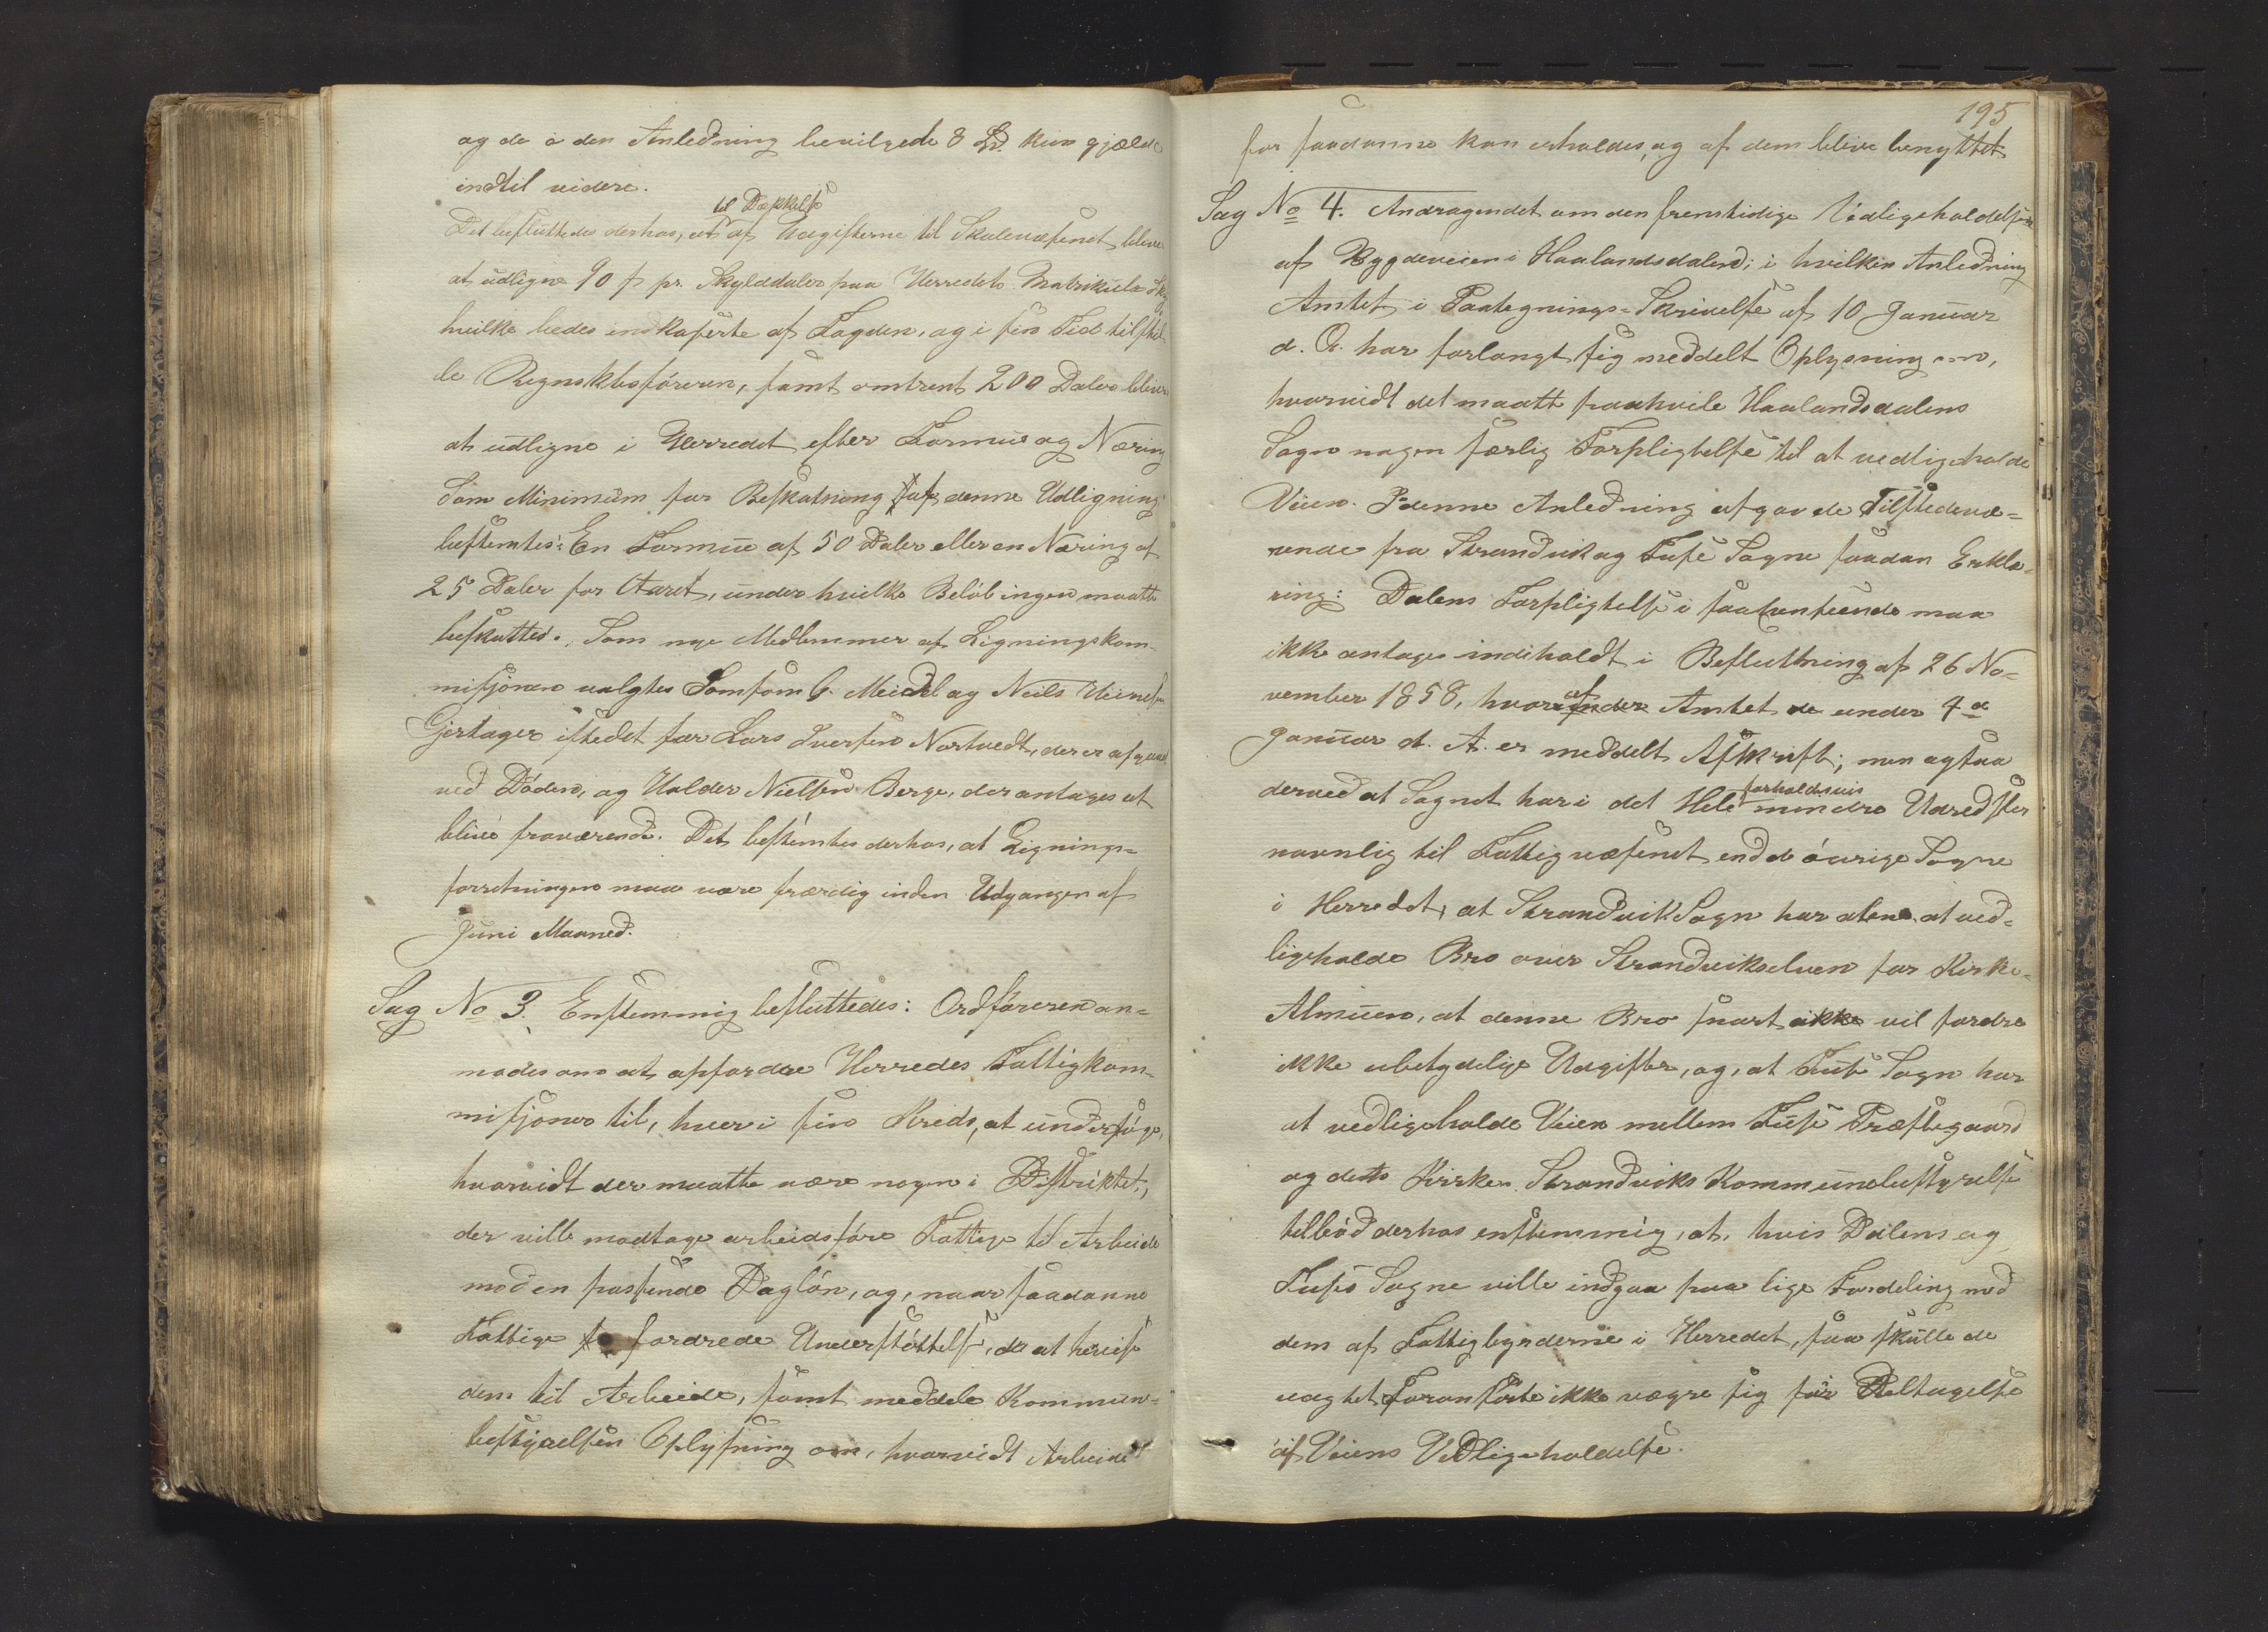 og de i den Anledning bevilgede 8 Sp. kun gjælde
indtil videre.
til Dækkelse
Det besluttedes derhos, at af Udgifterne til Skolevæsenet blive
at udligne 90 s pr. Skylddaler paa Herredets Matrikul-Sky
hvilke bedes indkasserte af Fogden, og i sin Tid tilstil
le Regnskbsføreren, samt omtrent 200 Daler bliver
at udligne i Herredet efter Formue og Næring
Som Minimum for Beskatning for denne Udligning
bestemtes: En Formue af 50 Daler eller en Næring af
25 Daler for Aaret, under hvilke Beløb ingen maatte
beskattes. Som nye Medlemmer af Ligningskom-
misjonen valgtes Samson G. Meidel og Neils
Gjertager istedet for Lars Iversen Nortvedt, der er afgaaet
ved Døden, og Haldor Nielsen Berge, der antages at
blive fraværende. Det bestemtes derhos, at Lignings-
forretningen maa være færdig inden Udgangen af
Juni Maaned.
Sag No 3. Enstemmig besluttedes: Ordføreren an-
modes om at opfordre Herredes Fattigkom-
misjoner til, hver i sin Kreds, at undersøge,
hvorvidt der maatte være nogen i Distriktet,
der ville modtage arbeidsføre Fattige til Arbeide
mod en passende Dagløn, og, naar saadanne
Fattige fordrede Understøttelse, da at henvise
dem til Arbeide, samt meddele Kommune-
bestyrelsen Oplysning om, hvorvidt Arbeide
195
for saadanne kan erholdes, og af dem blive benyttet
Sag No 4. Andragendet om den fremtidige Vedligeholdelse
af Bygdeveien i Haalandsdalen; i hvilken Anledning
Amtet i Paategnings-Skrivelse af 10 Januar
d. A. har forlangt sig meddelt Oplysning om,
hvorvidt det maatte paahvile Haalandsdalens
Sogn nogen særlig Forpligtelse til at vedligeholde
Veien. I denne Anledning afgav de Tilstedevæ-
rende fra Strandvik og Fuse Sogne saadan Erklæ-
ring: Dalens Forpligtelse i saahenseende maa
ikke antages indeholdt i Beslutning af 26 No-
vember 1858, hvoraf Amtet under 4de
Januar d. A. er meddelt Afskrift; men ogsaa
forholdsvis
derved at Sognet har i det Hele mindre Udredsler
navnlig til Fattigvæsenet end de øvrige Sogne
i Herredet, at Strandvik Sogn har alene at ved-
ligeholde Bro over Strandvikselven for Kirke-
Almuen, at denne Bro snart ikke vil fordre
ikke ubetydelige Udgifter, og, at Fuse Sogn har
at vedligeholde Veien mellem Fuse Præstegaard
og dets Kirke. Strandviks Kommunebestyrelse
tilbød derhos enstemmig, at, hvis Dalens og
Fuses Sogne ville indgaa paa lige Fordeling med
dem af Fattigbyrderne i Herredet, saa skulle de
uagtet Foranførte ikke vægre sig for Deltagelse
af Veiens Vedligeholdelse.